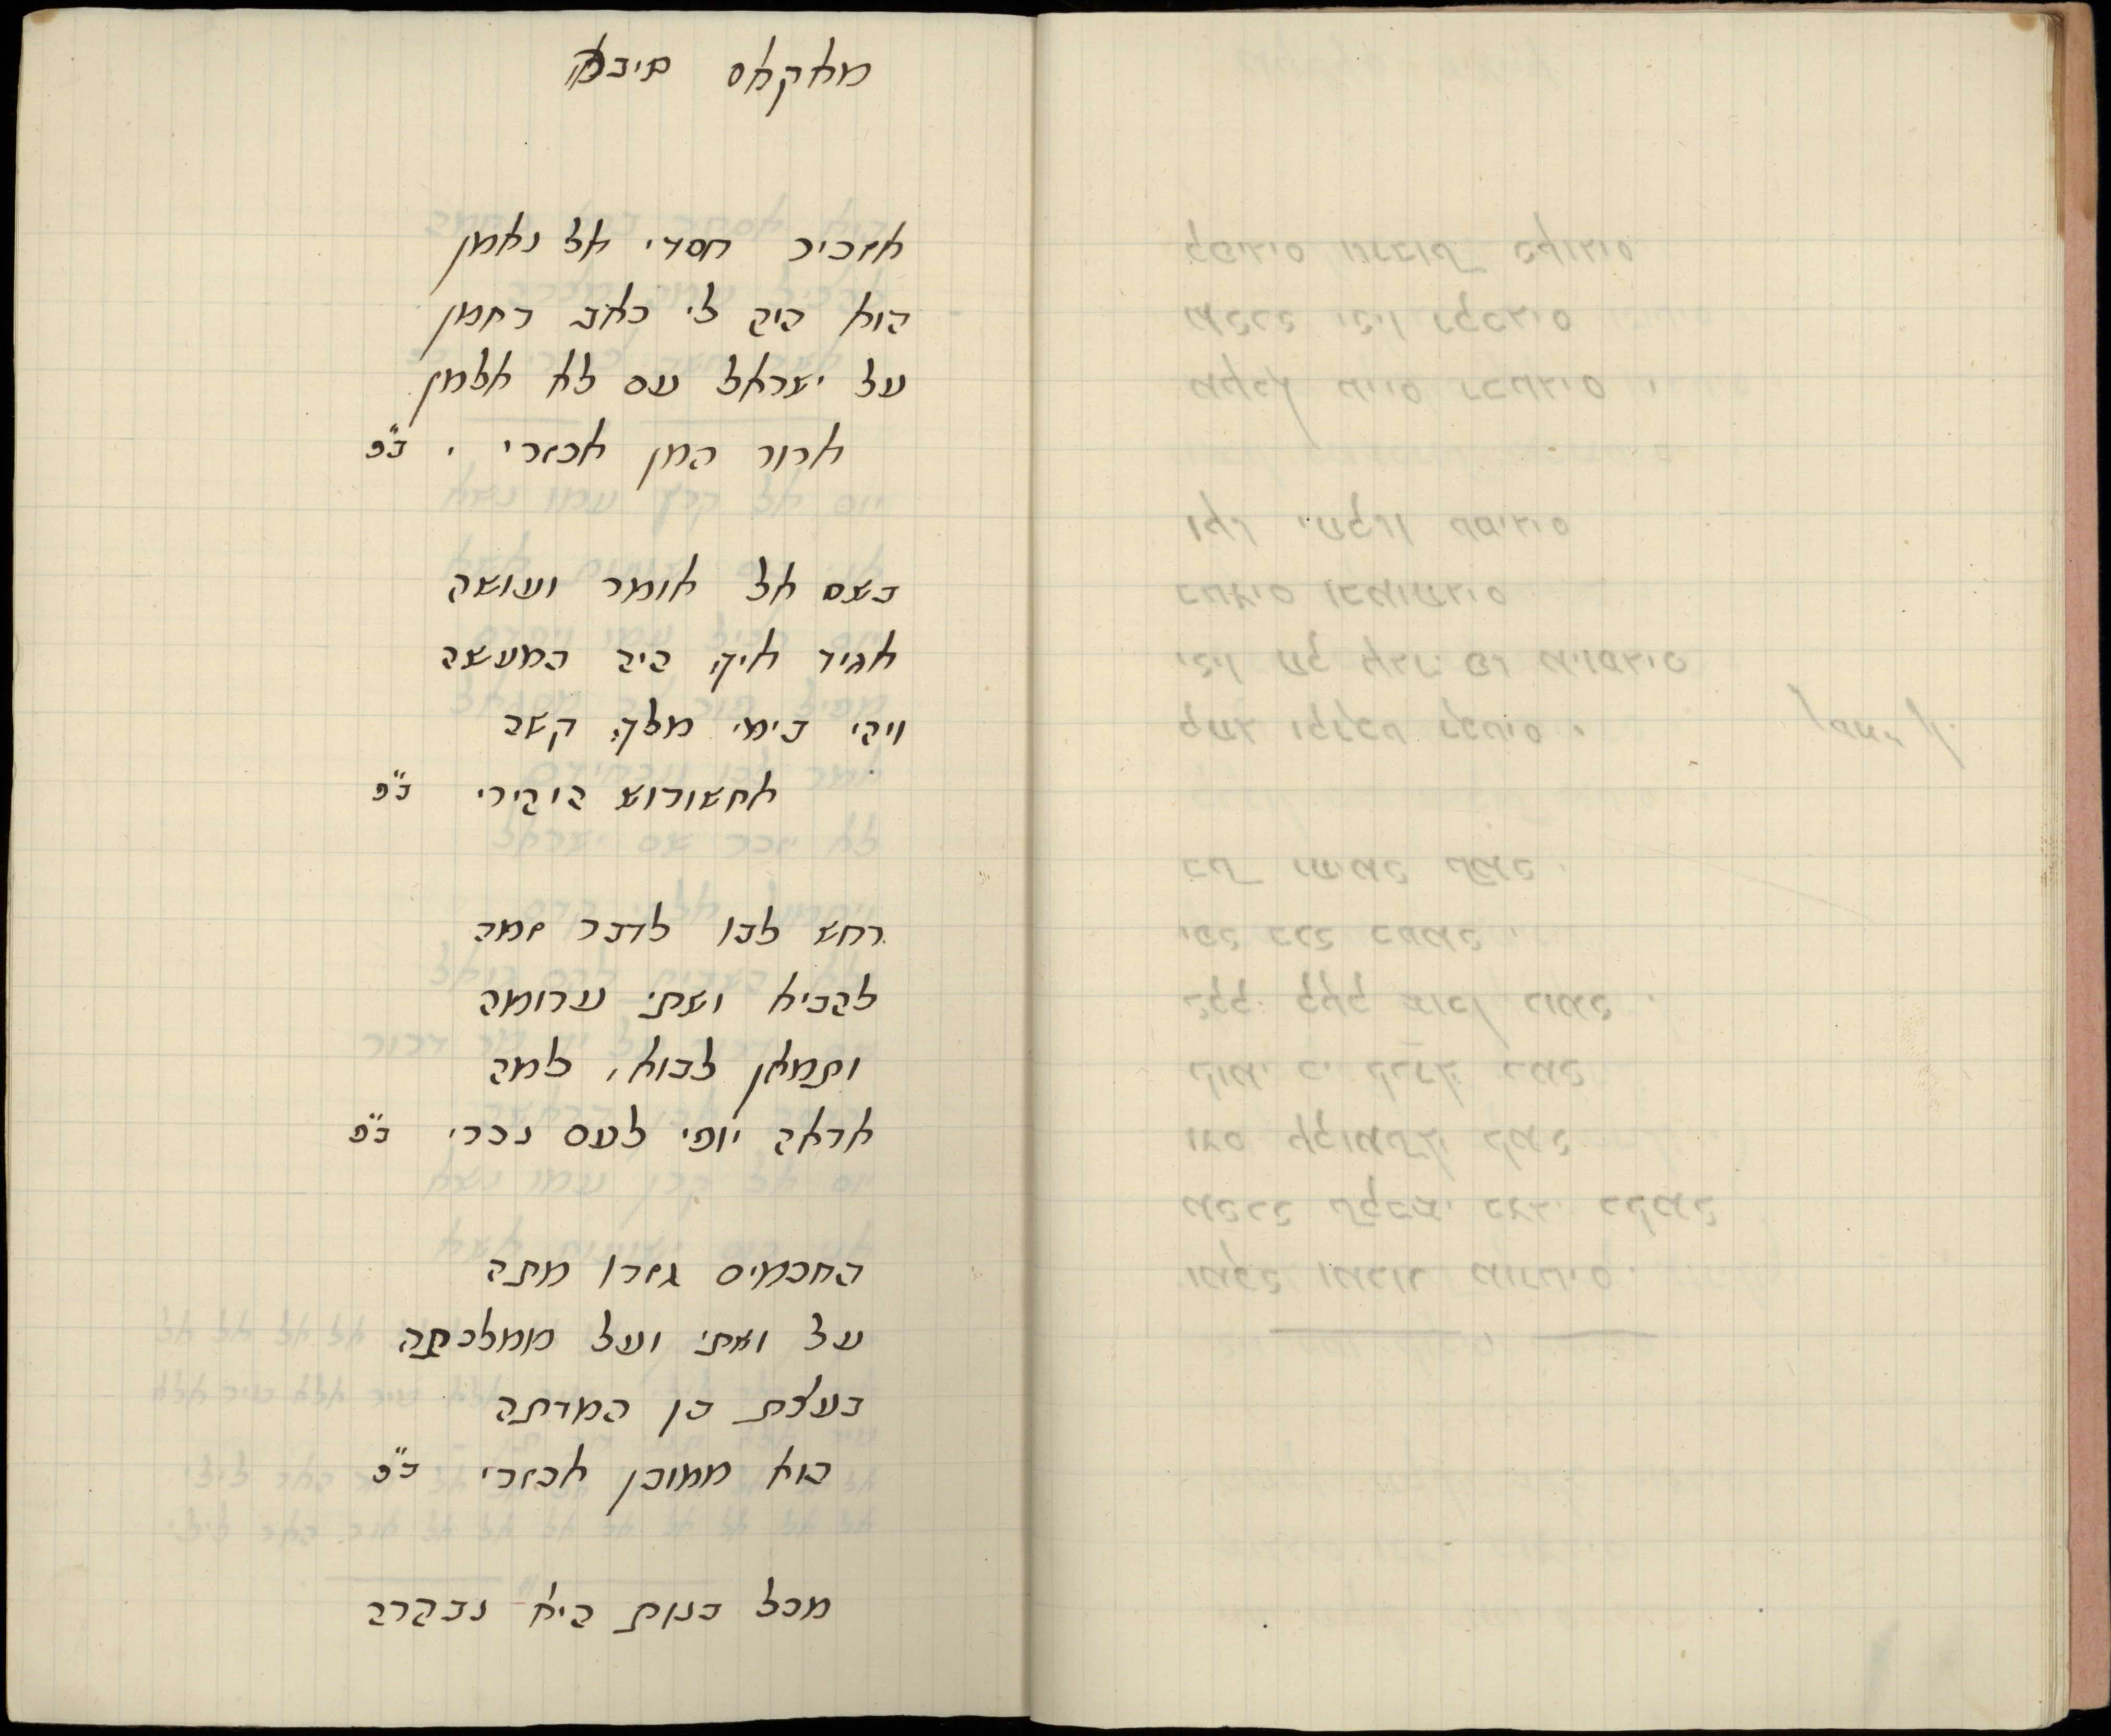 מאקאם סיבא
אזכיר חסדי אל נאמן
הוא היה לי כאב רחמן
על ישראל עם לא אלמן
ארור המן אכזרי . כ״פ
בשם אל אומר ועושה
אגיד איך היה המעשה
ויהי בימי מלך קשה
אחשורוש היהירי כ״פ
רחש לבו לדבר זמה
להביא ושתי ערומה
ותמאן לבוא, למה
אראה יופי לעם נכרי כ״פ
החכמים גזרו מתה
על ושתי ועל ממלכתה
בעצת בן המדתה
הוא ממוכן אכזרי כ״פ
מכל בנות היא נבהרה